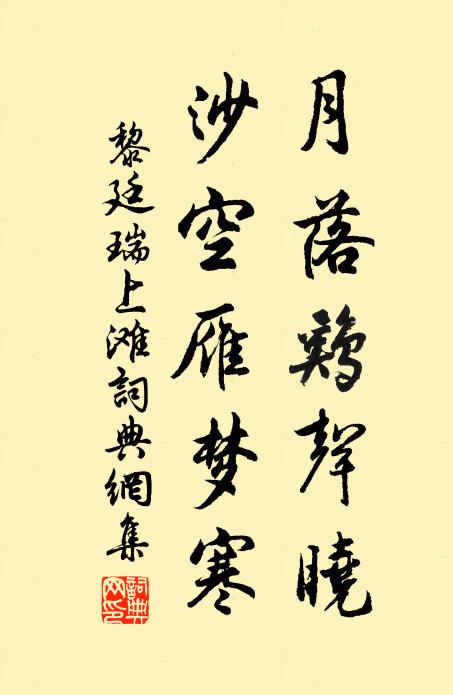 月落鷄聲曉
沙空雁梦寒
黎廷瑞上滩詞典網集
詞典